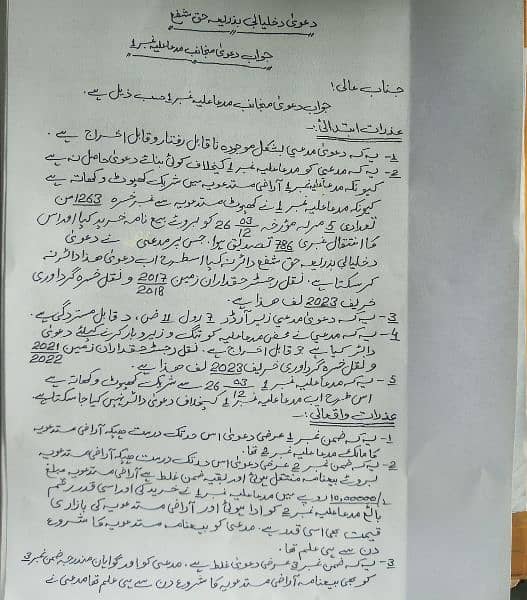 دعویٰ دخلیابی بذریعہ حق شفع
جواب دعویٰ منجانب مدعاعلیہ نمبر 1
جناب عالی!
جواب دعویٰ منجانب مدعاعلیہ نمبر 1 حسب ذیل ہے۔
عذرات ابتدائی:۔
1- یہ کہ دعویٰ مدعی بشکل موجودہ ناقابل رفتار و قابل اخراج ہے۔
2- یہ کہ مدعی کو مدعاعلیہ نمبر 1 کیخلاف کوئی بنائے دعویٰ حاصل نہ ہے
کیونکہ مدعاعلیہ نمبر 1 آراضی متدعویہ میں شریک کھیوٹ و کھاتہ ہے
کیونکہ مدعاعلیہ نمبر 1 نے کھیوٹ متدعویہ سے نمبر خسرہ 1263 من
تعدادی 5 مرلہ مورخہ 26 03/12 کو بروئے بیع نامہ خرید کیا اور اس
کا انتقال نمبری 786 تصدیق ہوا۔ جس پر مدعی نے دعویٰ
دخلیابی بذریعہ حق شفع دائر نہ کیا اسطرح اب دعویٰ ھذا دائر نہ
کر سکتا ہے۔ نقل رجسٹر حقداران زمین 2017/2018 و نقل خسرہ گرداوری
خریف 2023 لف ھذا ہے۔
3- یہ کہ دعویٰ مدعی زیر آرڈر 7 رول 11 ض۔ د قابل مستردگی ہے۔
4- یہ کہ مدعی نے محض مدعاعلیہ کو تنگ و زیر بار کرنے کیلئے دعویٰ
دائر کیا ہے جو قابل اخراج ہے۔ نقل رجسٹر حقداران زمین 2021/2022
و نقل خسرہ گرداوری خریف 2023 لف ھذا ہے۔
5- یہ کہ مدعاعلیہ نمبر 1 26 03/12 سے شریک کھیوٹ و کھاتہ ہے
اس طرح اب مدعاعلیہ نمبر 1 کیخلاف دعویٰ دائر نہیں کیا جا سکتا ہے
عذرات واقعاتی:۔
1- یہ کہ ضمن نمبر 1 عرضی دعویٰ اس حد تک درست جبکہ آراضی متدعویہ
کا مالک مدعاعلیہ نمبر 2 تھا۔
2- یہ کہ ضمن نمبر 2 عرضی دعویٰ اس حد تک درست جبکہ آراضی متدعویہ
بروئے بیعنامہ منتقل ہوئی اور بقیہ ضمن غلط ہے آراضی متدعویہ مبلغ
10,00000/1 روپے میں مدعاعلیہ نمبر 1 نے خرید کی اور اسی قدر رقم
بائع مدعاعلیہ نمبر 2 کو ادا ہوئی اور آراضی متدعویہ کی بازاری
قیمت بھی اسی قدر ہے۔ مدعی کو بیعنامہ متدعویہ کا شروع
دن سے ہی علم تھا۔
3- یہ کہ ضمن نمبر 3 عرضی دعویٰ غلط ہے۔ مدعی کو اور گواہان مندرجہ ضمن نمبر 3
کو بھی بیعنامہ آراضی متدعویہ کا شروع دن سے ہی علم تھا مدعی نے